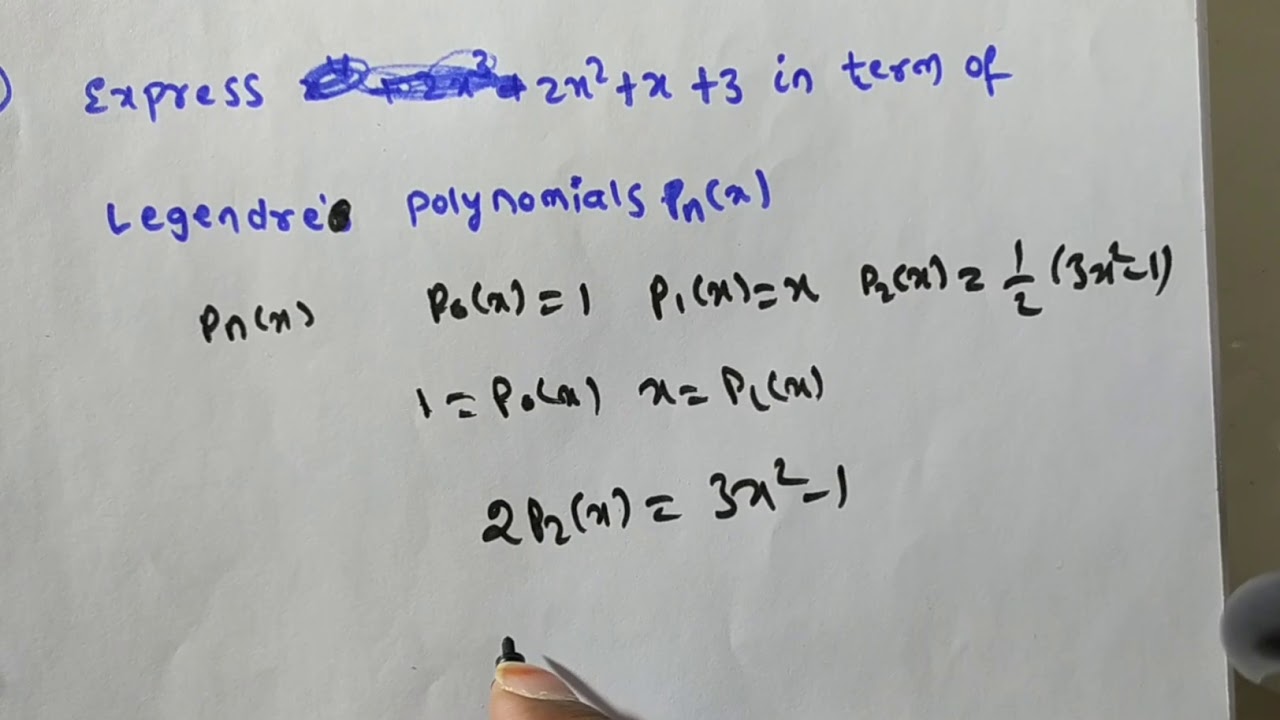 ) Express 2x² + x + 3 in term of
Legendre's polynomials Pn(x)
Pn(x) P₀(x) = 1 P₁(x) = x P₂(x) = 1/2 (3x² - 1)
1 = P₀(x) x = P₁(x)
2P₂(x) = 3x² - 1